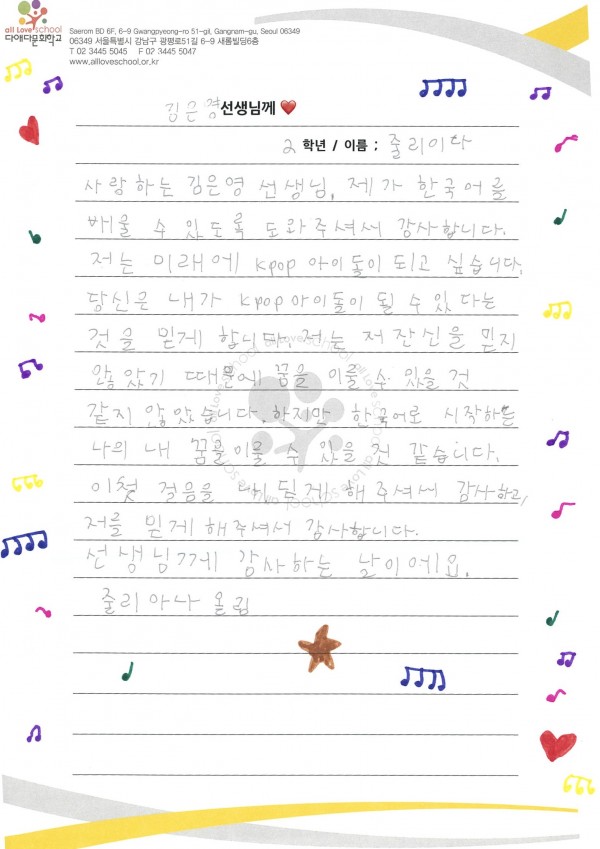 all Love school
다애다문화학교
Saerom BD 6F, 6-9 Gwangpyeong-ro 51-gil, Gangnam-gu, Seoul 06349
06349 서울특별시 강남구 광평로51길 6-9 새롬빌딩6층
T 02 3445 5045 F 02 3445 5047
www.allloveschool.or.kr
김은영선생님께
2 학년 / 이름 : 줄리아나
사랑하는 김은영 선생님, 제가 한국어를
배울 수 있도록 도와주셔서 감사합니다.
저는 미래에 kpop 아이돌이 되고 싶습니다.
당신은 내가 kpop 아이돌이 될 수 있다는
것을 믿게 합니다. 저는 저 잔신을 믿지
않았기 때문에 꿈을 이룰 수 있을 것
같지 않았습니다. 하지만 한국어로 시작하는
나의 내 꿈을 이룰 수 있을 것 같습니다.
이 첫 걸음을 내딛게 해 주셔서 감사하고,
저를 믿게 해주셔서 감사합니다.
선생님께 감사하는 날이에요.
줄리아나 올림